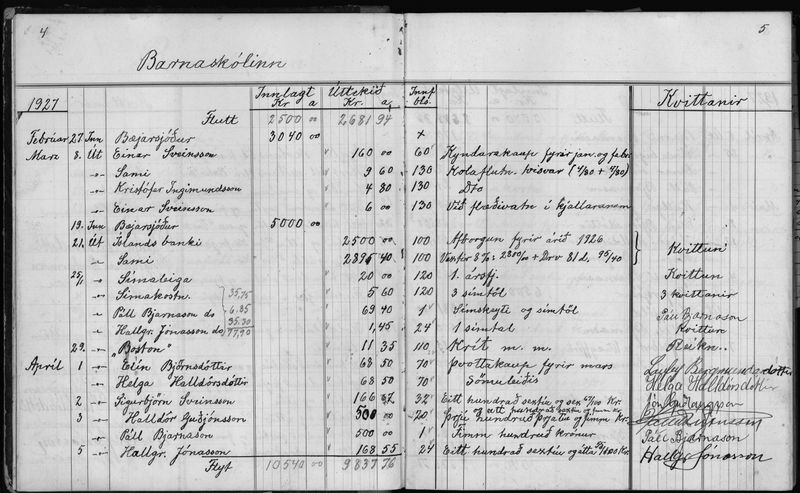 4
5
Barnaskólinn
Innlagt Úttekið Innf
1927 Kr a Kr. a bls. Kvittanir
Flutt 2500 00 2681 94
Febrúar 27. Inn Bæjarsjóður 3040 00 +
Marz 8. Út Einar Sveinsson " 160 00 60 Kyndarakaup fyrir jan. og febr.
-"- Sami " 9 60 130 Kolaflutn. tvisvar
-"- Kristófer Ingimundsson " 4 80 130 Dto
-"- Einar Sveinsson " 6 00 130 Við flæðivatn í kjallaranum
19. Inn Bæjarsjóður 5000 00
21. Út Íslands banki 2500 00 100 Afborgun fyrir árið 1926
-"- Sami " 2395 40 100 Kvittun
25/11 -"- Símaleiga " 20 00 120 1. ársfj. Kvittun
-"- Símakostn. 35,75 " 5 60 120 3 símtöl 3 kvittanir
-"- Páll Bjarnason do 6.85 " 69 40 1 Símskeyti og símtöl Páll Bjarnason
-"- Hallgr. Jónasson do 35.30 " 1,45 24 1 símtal Kvittun
77,90
29. -"- "Boston" " 11 35 110 Krít m. m. Reikn..
Apríl 1 -"- Elín Björnsdóttir " 68 50 70 Þvottakaup fyrir mars
-"- Helga Halldórsdóttir " 68 50 70 Sömuleiðis Helga Halldórsdóttir
2 -"- Sigurbjörn Sveinsson " 166 32 Eitt hundrað sextíu og sex Kr.
3 -"- Halldór Guðjónsson 500 00 20 Þrjú hundruð þrjátíu og fimm kr.
-"- Páll Bjarnason 500 00 1 Fimm hundruð krónur Páll Bjarnason
5 -"- Hallgr. Jónasson 168 55 24 Eitt hundrað sextíu og átta 55/100 Kr. Hallgr Jónasson
Flyt 10540 00 9837 76